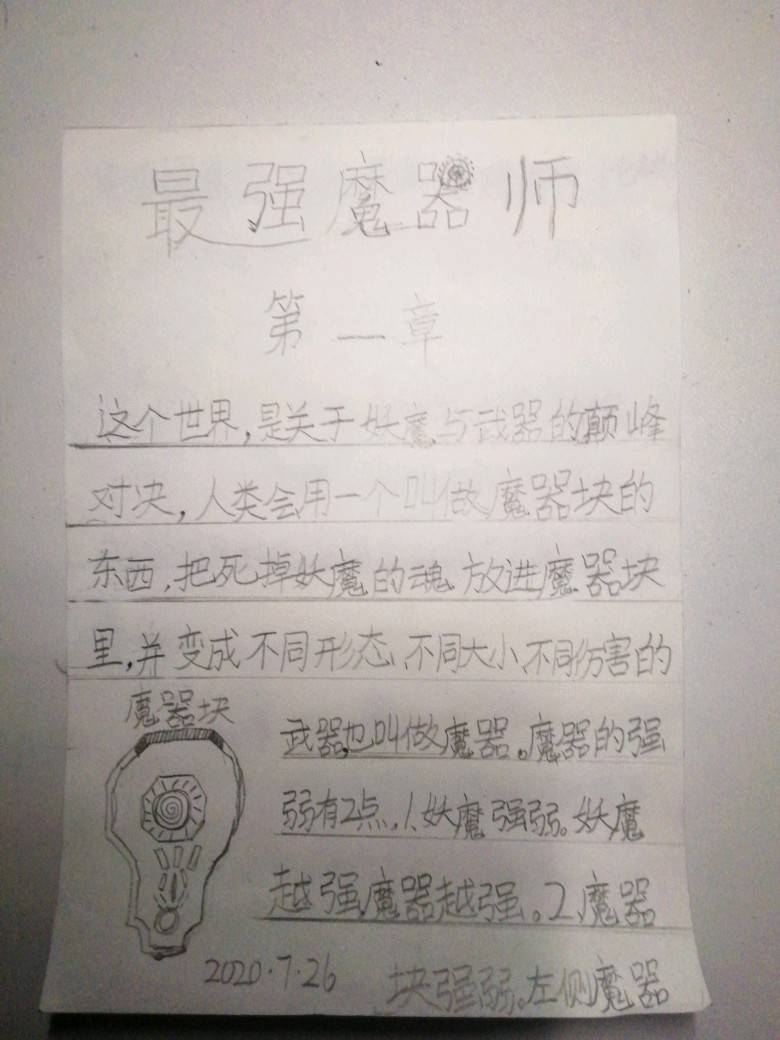 最强魔器师
第一章
这个世界,是关于妖魔与武器的颠峰
对决,人类会用一个叫做魔器块的
东西,把死掉妖魔的魂放进魔器块
里,并变成不同形态、不同大小、不同伤害的
魔器块
武器,也叫做魔器。魔器的强
弱有2点,1、妖魔强弱。妖魔
越强魔器越强。2、魔器
2020·7·26
块强弱。左侧魔器